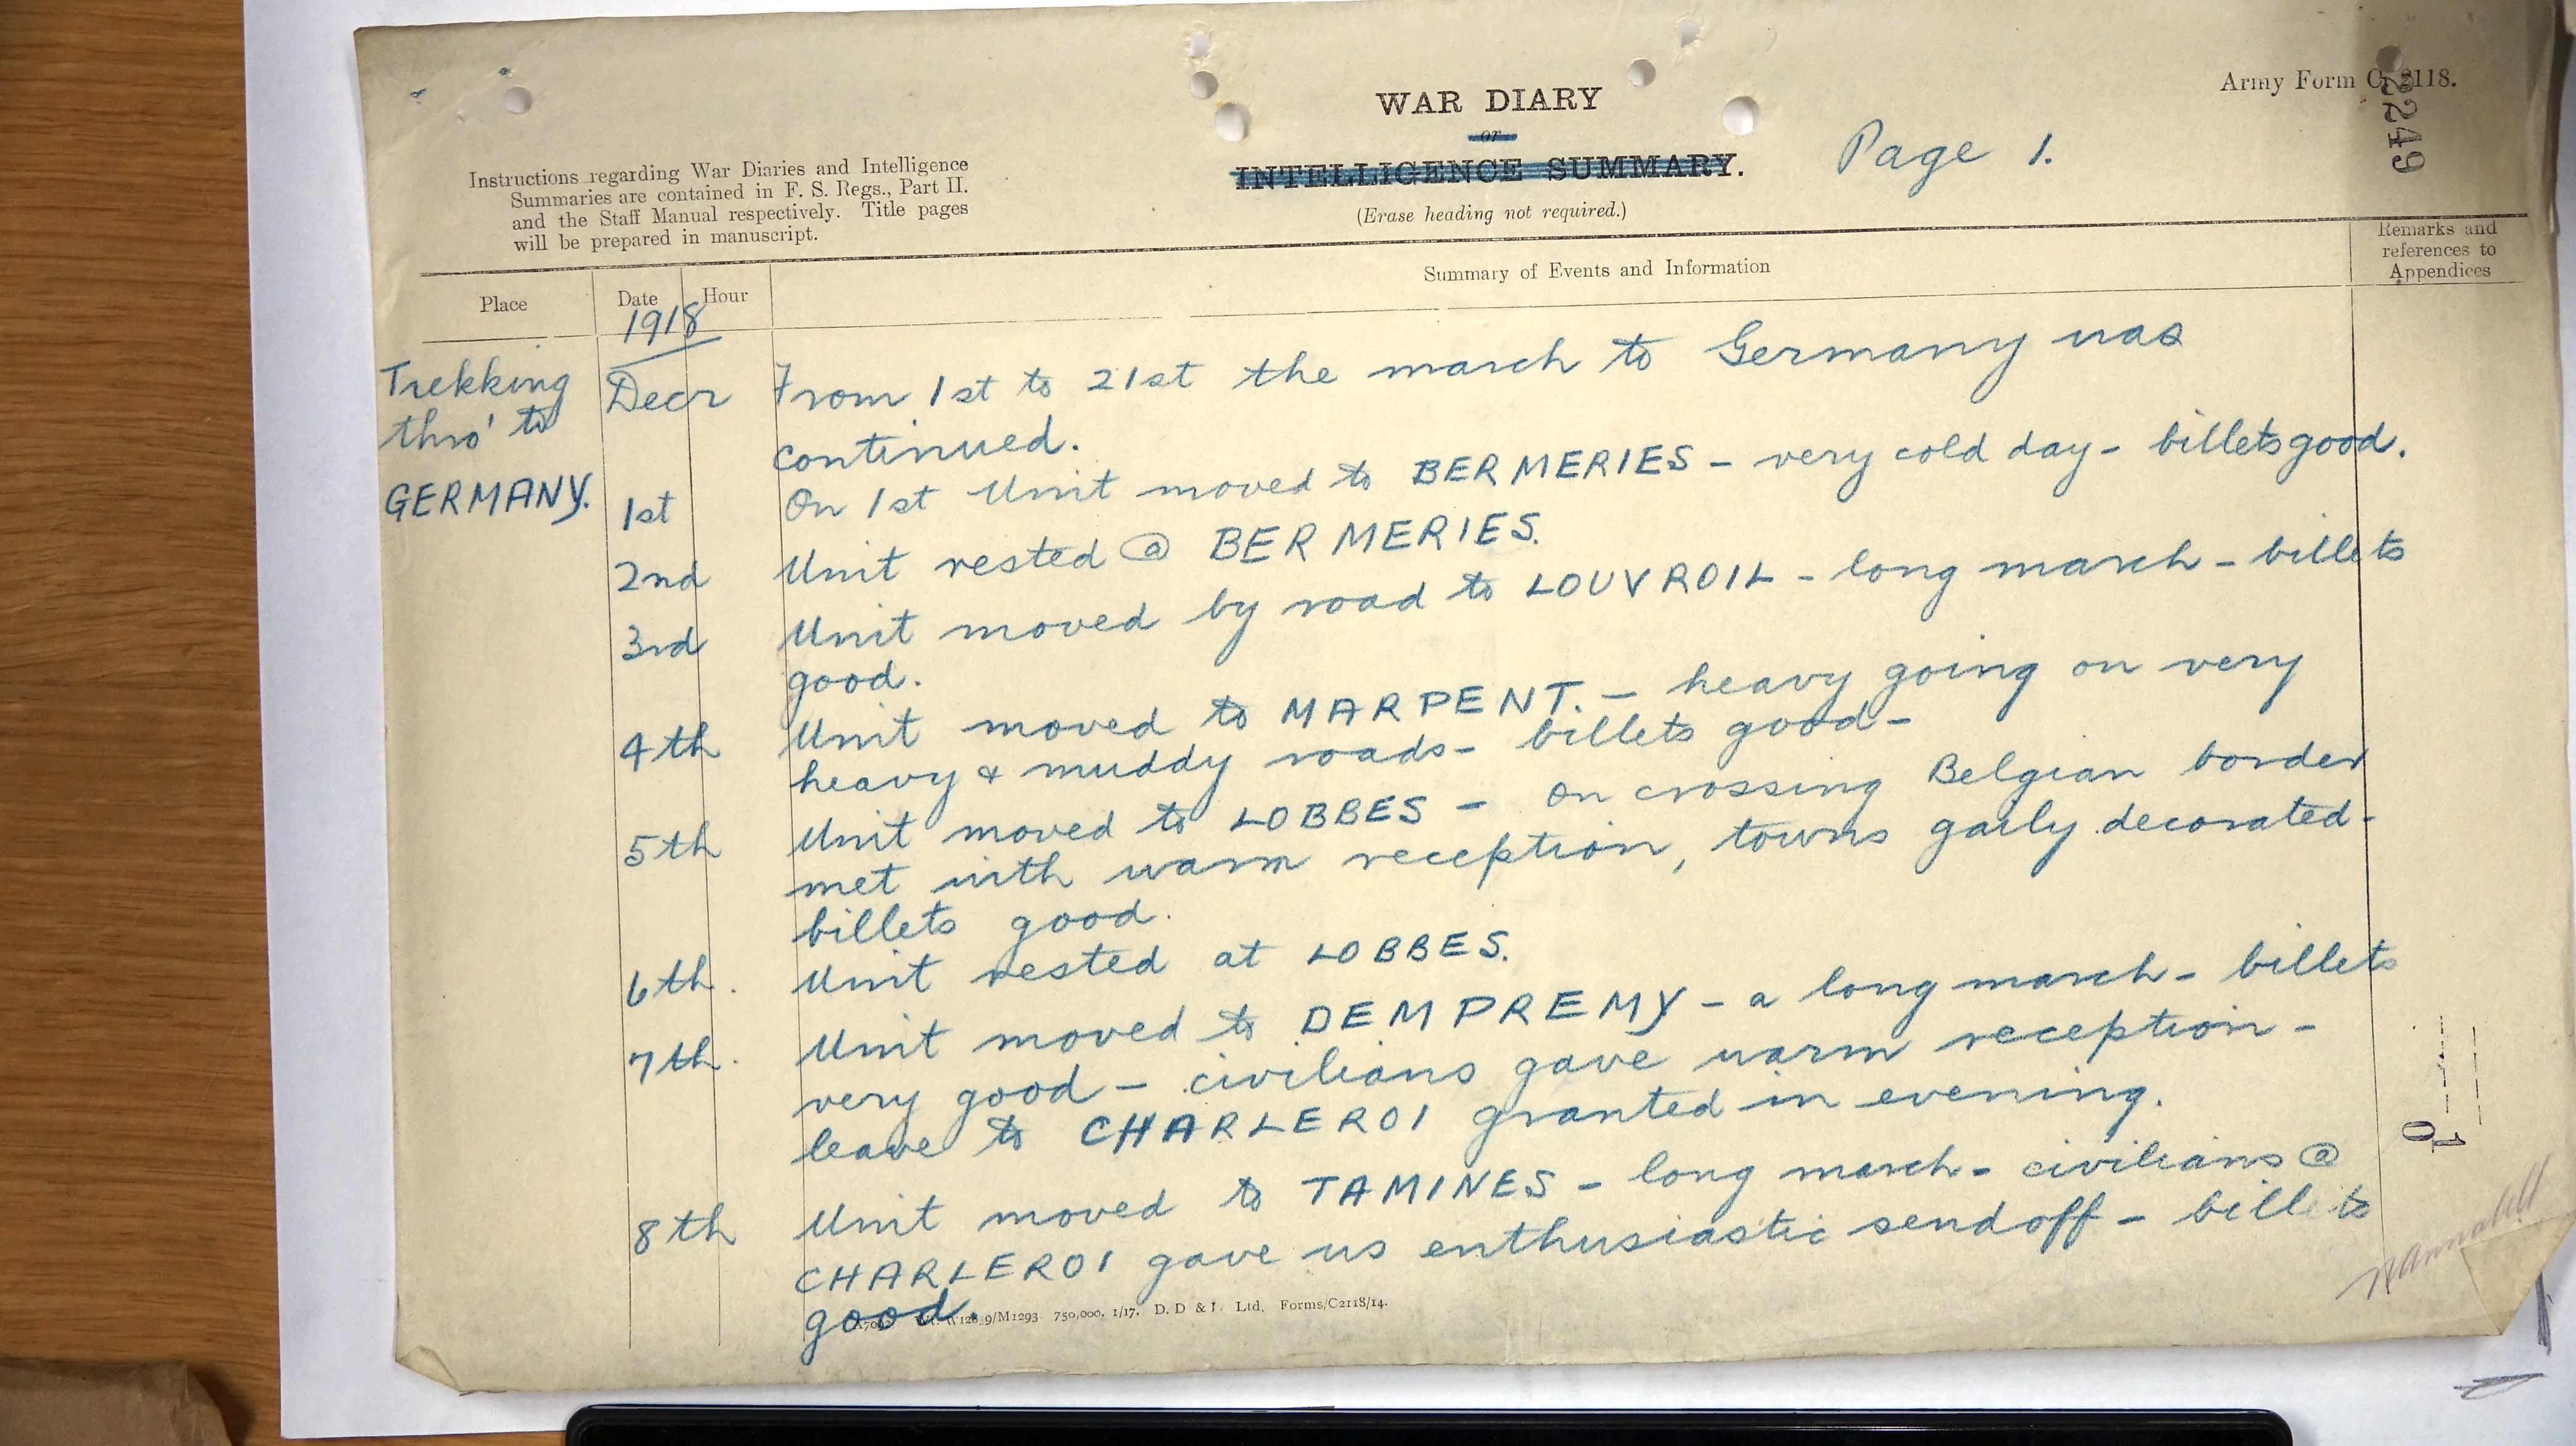 Army Form C. 2118.
2249
WAR DIARY
or
INTELLIGENCE SUMMARY.
(Erase heading not required.)
Page 1.
Instructions regarding War Diaries and Intelligence
Summaries are contained in F. S. Regs., Part II.
and the Staff Manual respectively. Title pages
will be prepared in manuscript.
Place
Date
Hour
Summary of Events and Information
Remarks and
references to
Appendices
1918
Trekking
thro' to
GERMANY.
Decr From 1st to 21st the march to Germany was
continued.
1st On 1st Unit moved to BERMERIES - very cold day - billets good.
2nd Unit rested @ BERMERIES.
3rd Unit moved by road to LOUVROIL - long march - billets
good.
4th Unit moved to MARPENT. - heavy going on very
heavy & muddy roads - billets good -
5th Unit moved to LOBBES - on crossing Belgian border
met with warm reception, towns gaily decorated -
billets good.
6th. Unit rested at LOBBES.
7th. Unit moved to DEMPREMY - a long march - billets
very good - civilians gave warm reception -
leave to CHARLEROI granted in evening.
8th Unit moved to TAMINES - long march - civilians @
CHARLEROI gave us enthusiastic sendoff - billets
good.
9/M1293 750,000. 1/17. D. D & L. Ltd. Forms/C2118/14.